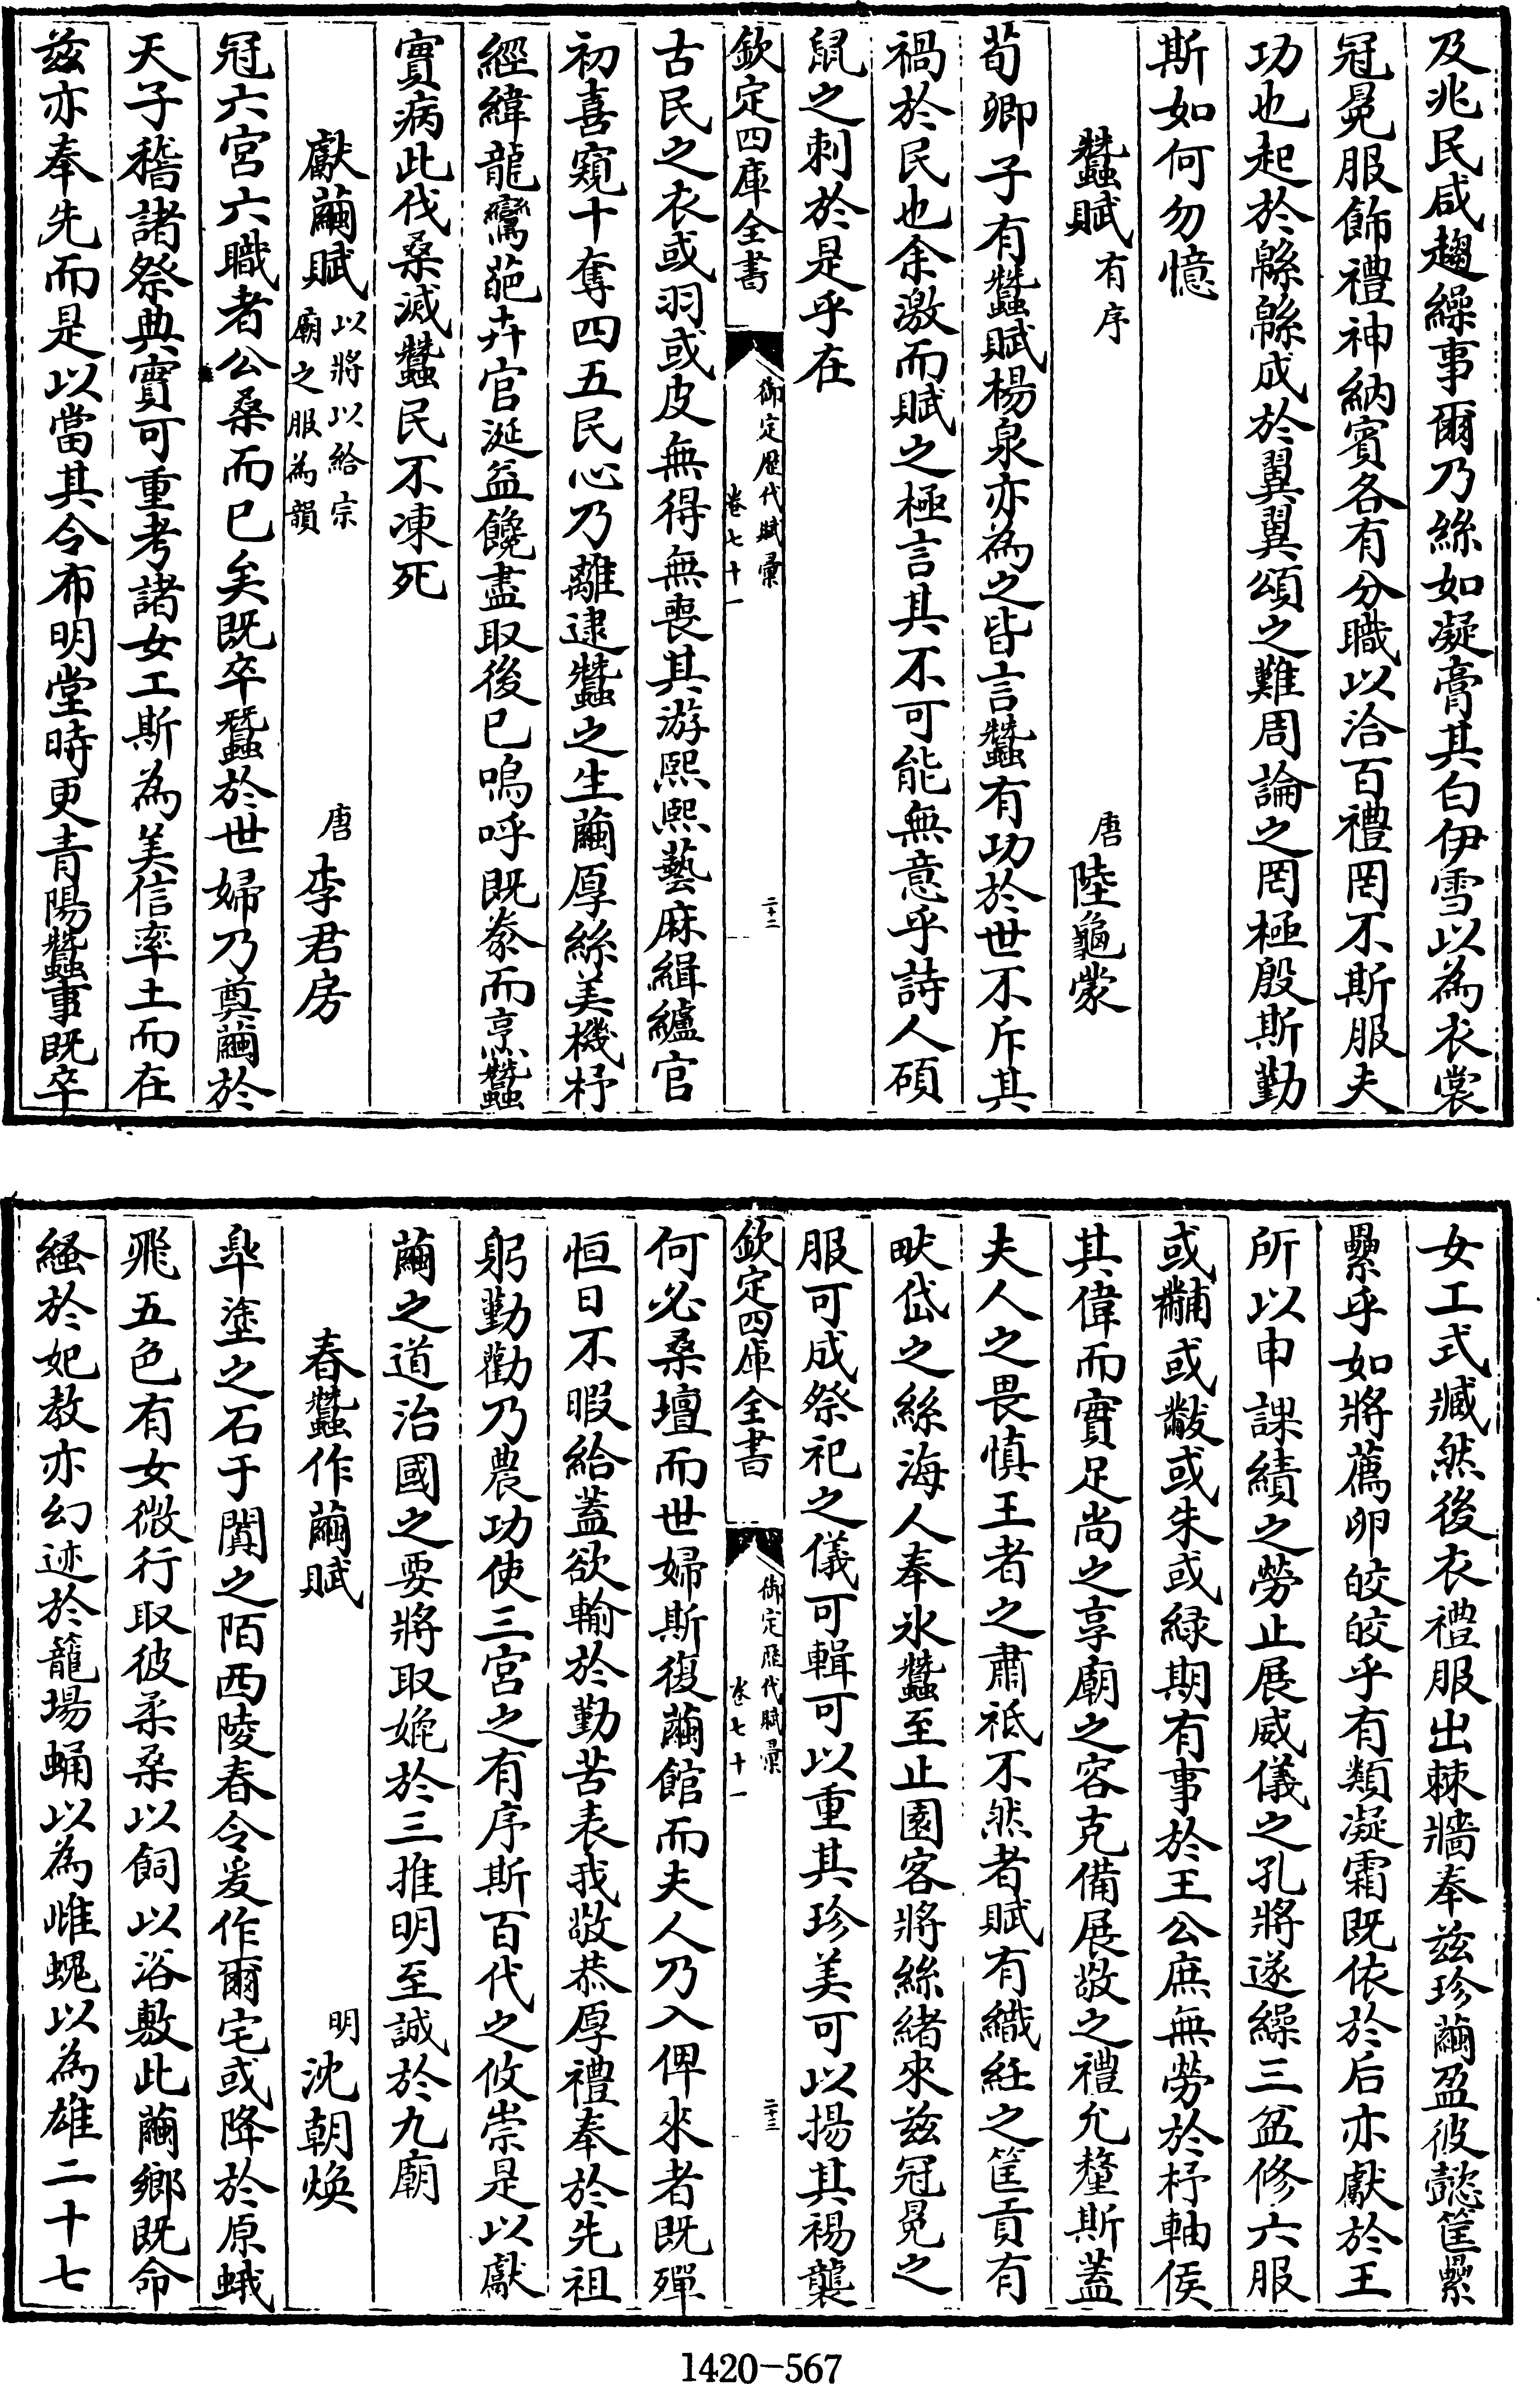 及兆民咸趨繰事爾乃絲如凝膏其白伊雪以為衣裳
冠冕服飾禮神納賓各有分職以洽百禮罔不斯服夫
功也起於緜緜成於翼翼頌之難周論之罔極殷斯勤
斯如何勿憶
蠶賦有序 唐陸龜蒙
荀卿子有蠶賦楊泉亦為之皆言蠶有功於世不斥其
禍於民也余激而賦之極言其不可能無意乎詩人碩
鼠之刺於是乎在
欽定四庫全書 御定歷代賦彙 卷七十一 二十二
古民之衣或羽或皮無得無喪其游熙熙藝麻緝纑官
初喜窺十奪四五民心乃離逮蠶之生繭厚絲美機杼
經緯龍鸞葩卉官涎益饞盡取後已嗚呼既豢而烹蠶
實病此伐桑滅蠶民不凍死
獻繭賦以將以給宗廟之服為韻 唐李君房
冠六宮六職者公桑而已矣既卒蠶於世婦乃奠繭於
天子稽諸祭典實可重考諸女工斯為美信率土而在
兹亦奉先而是以當其令布明堂時更青陽蠶事既卒
女工式臧然後衣禮服出棘牆奉兹珍繭盈彼懿筐纍
纍乎如將薦卵皎皎乎有類凝霜既依於后亦獻於王
所以申課績之勞止展威儀之孔將遂繰三盆修六服
或黼或黻或朱或緑期有事於王公庶無勞於杼軸侯
其偉而實足尚之享廟之容克備展敬之禮允釐斯蓋
夫人之畏慎王者之肅祗不然者賦有織紝之筐貢有
畎岱之絲海人奉氷蠶至止園客將絲緒來兹冠冕之
服可成祭祀之儀可輯可以重其珍美可以揚其裼襲
欽定四庫全書 御定歷代賦彙 卷七十一 二十三
何必桑壇而世婦斯復繭館而夫人乃入俾來者既殫
恒日不暇給蓋欲輸於勤苦表我敬恭厚禮奉於先祖
躬勤勸乃農功使三宮之有序斯百代之攸崇是以獻
繭之道治國之要將取媲於三推明至誠於九廟
春蠶作繭賦 明沈朝煥
臯塗之石于闐之陌西陵春令爰作爾宅或降於原蛾
飛五色有女微行取彼柔桑以飼以浴敷此繭鄉既命
繅於妃教亦幻迹於籠場蛹以為雌螝以為雄二十七
1420-567